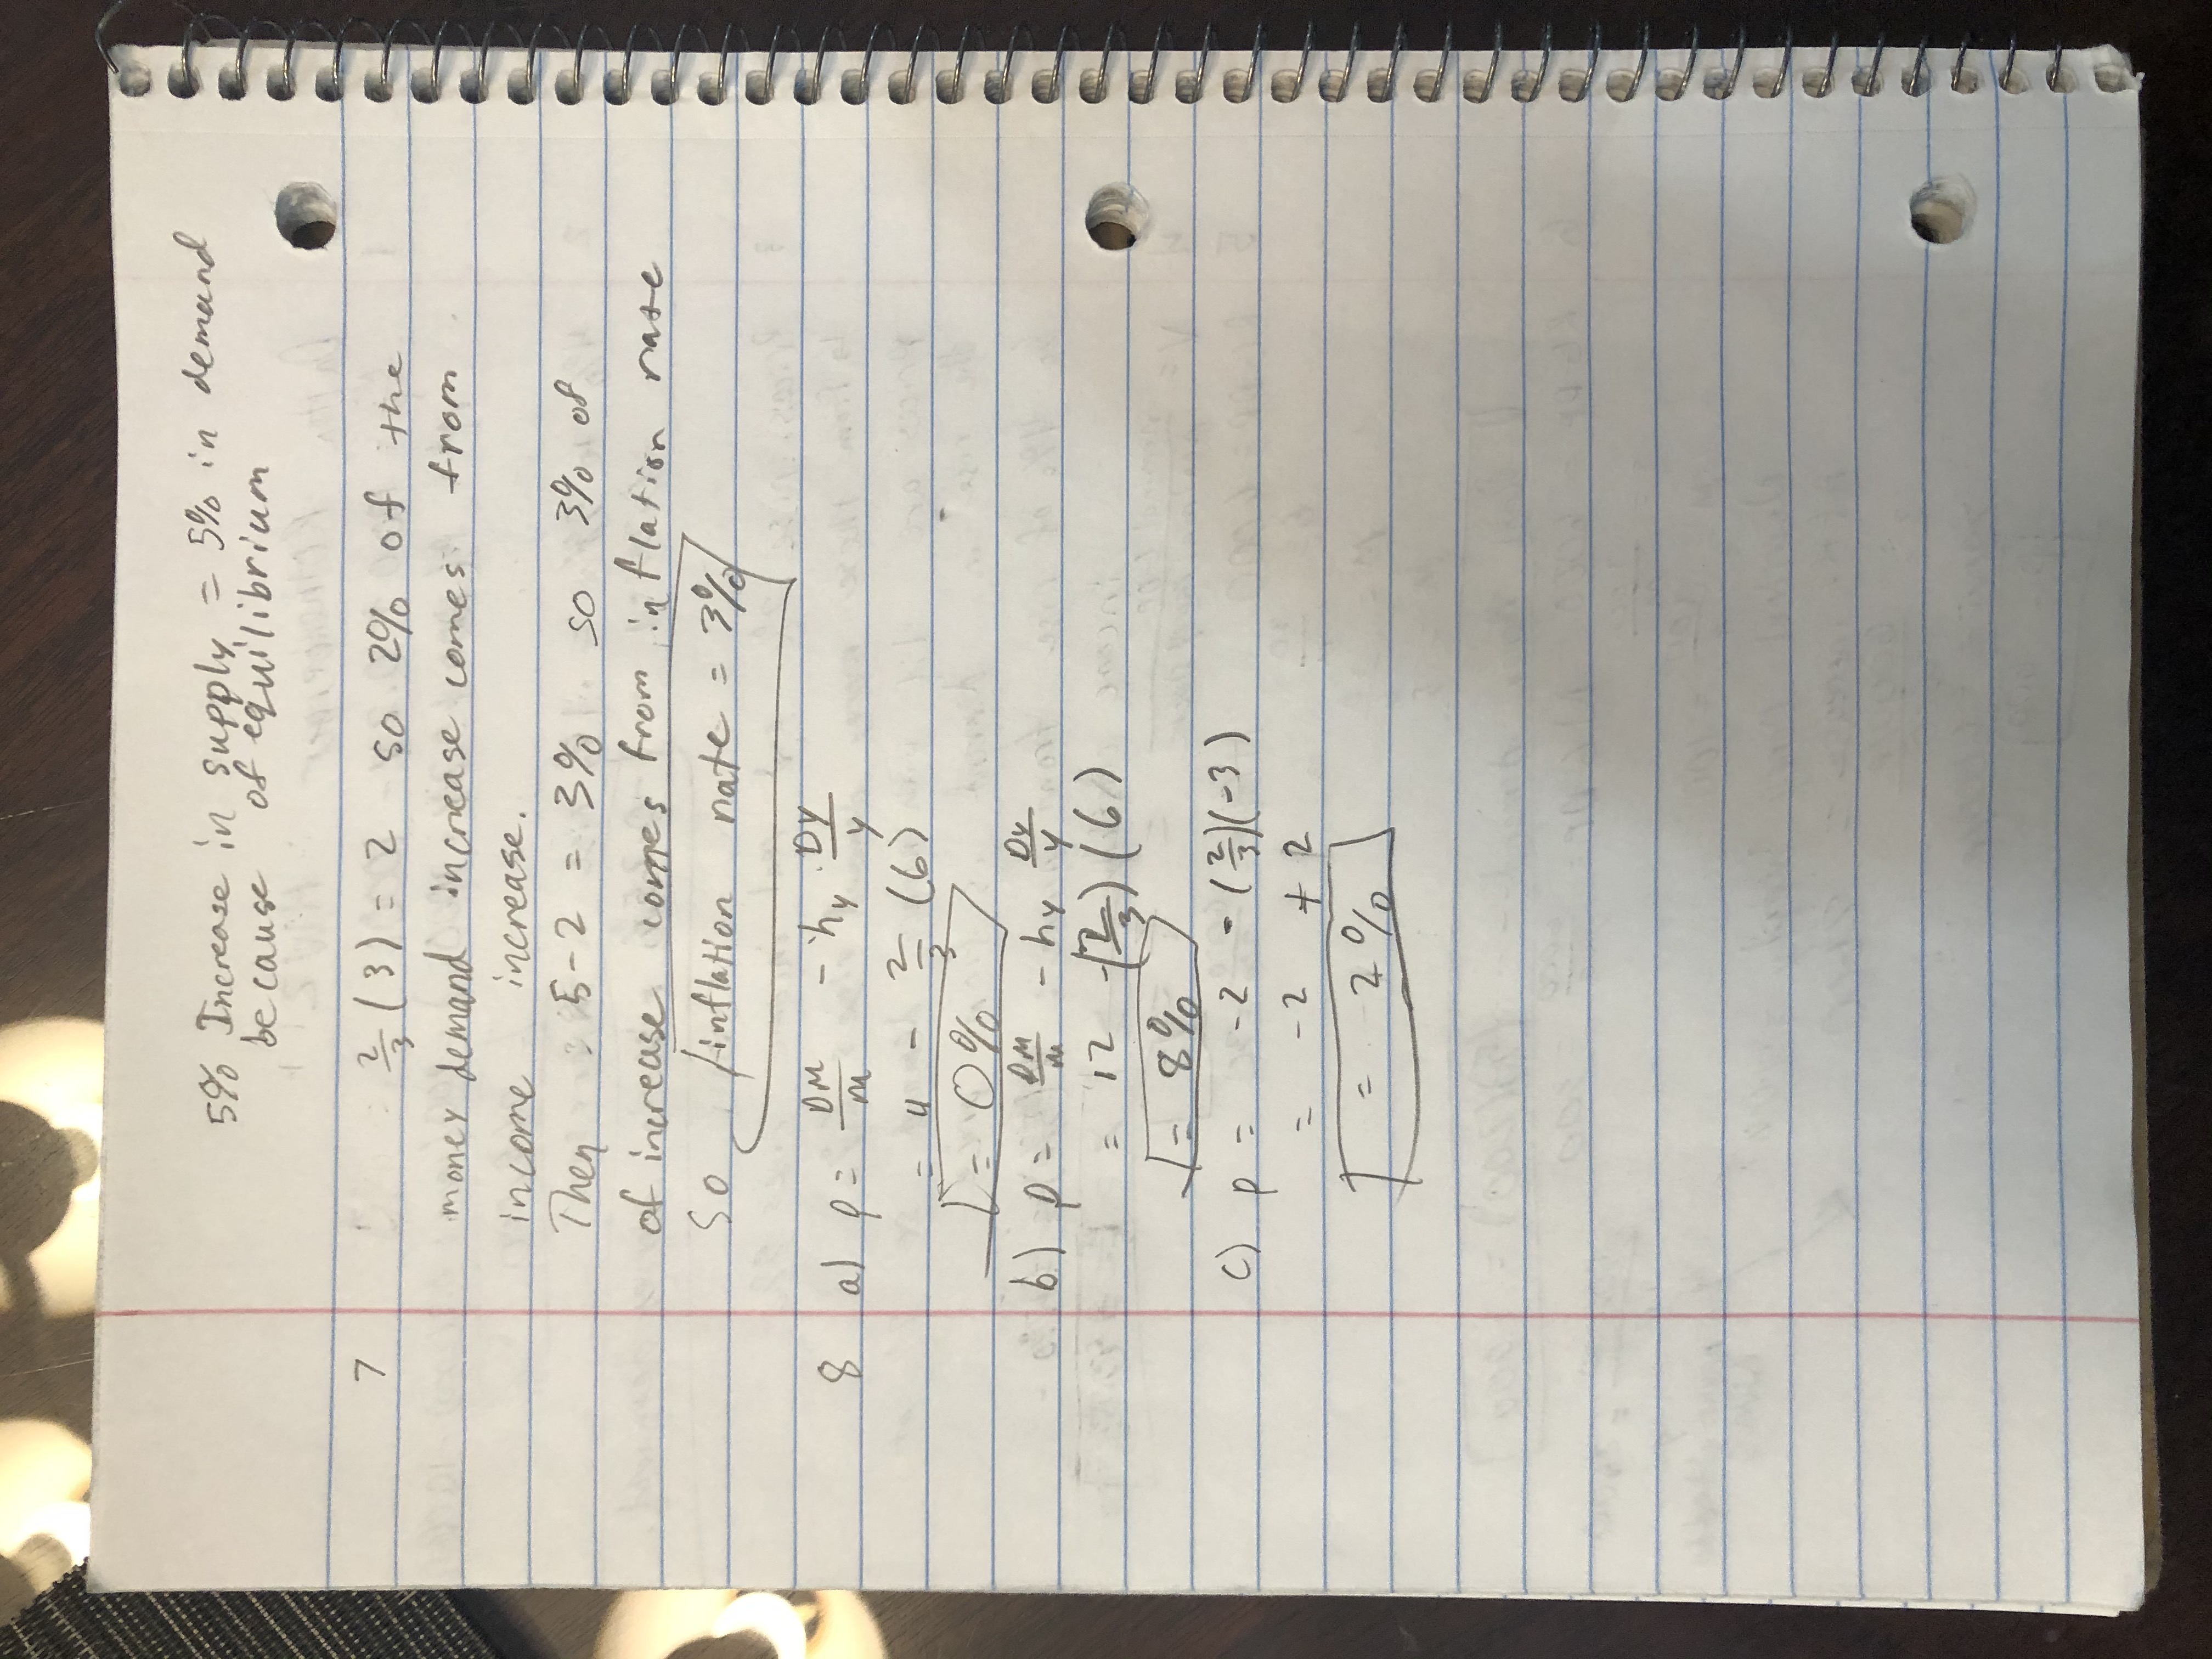 5% Increase in supply = 5% in demand
because of equilibrium
7 2/3 (3) = 2 so 2% of the
money demand increase comes from
income increase.
Then : 5-2 = 3% so 3% of
of increase comes from inflation rate
So inflation rate = 3%
8 a) p = DM/M - hy DY/Y
= 4 - 2/3 (6)
= 0%
b) p = DM/M - hy DY/Y
= 12 - (2/3) (6)
= 8%
c) p = -2 - (2/3)(-3)
= -2 + 2
= 2%